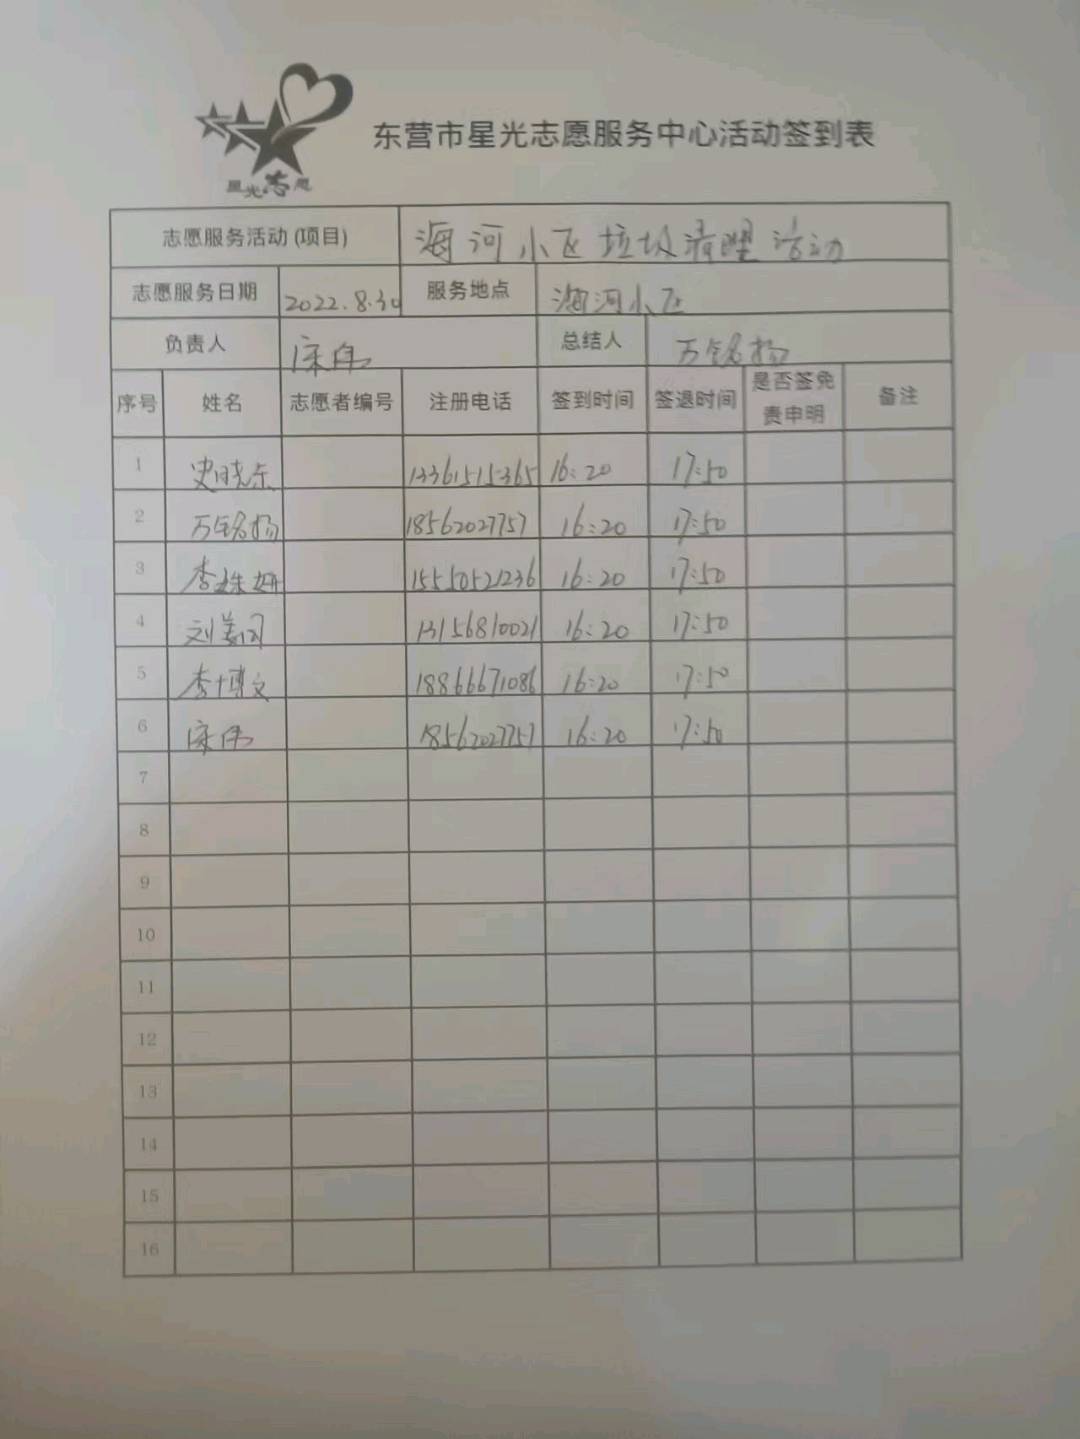 星光志愿
东营市星光志愿服务中心活动签到表
志愿服务活动 (项目) 海河小区垃圾清理活动
志愿服务日期 2022.8.30 服务地点 海河小区
负责人 宋伟 总结人 万铭扬
序号 姓名 志愿者编号 注册电话 签到时间 签退时间 是否签免责申明 备注
1 史晓东 13361515365 16:20 17:50
2 万铭扬 18562027757 16:20 17:50
3 李姝妍 15550521236 16:20 17:50
4 刘 13156810021 16:20 17:50
5 李博文 18866671086 16:20 17:50
6 宋伟 18562027757 16:20 17:50
7
8
9
10
11
12
13
14
15
16